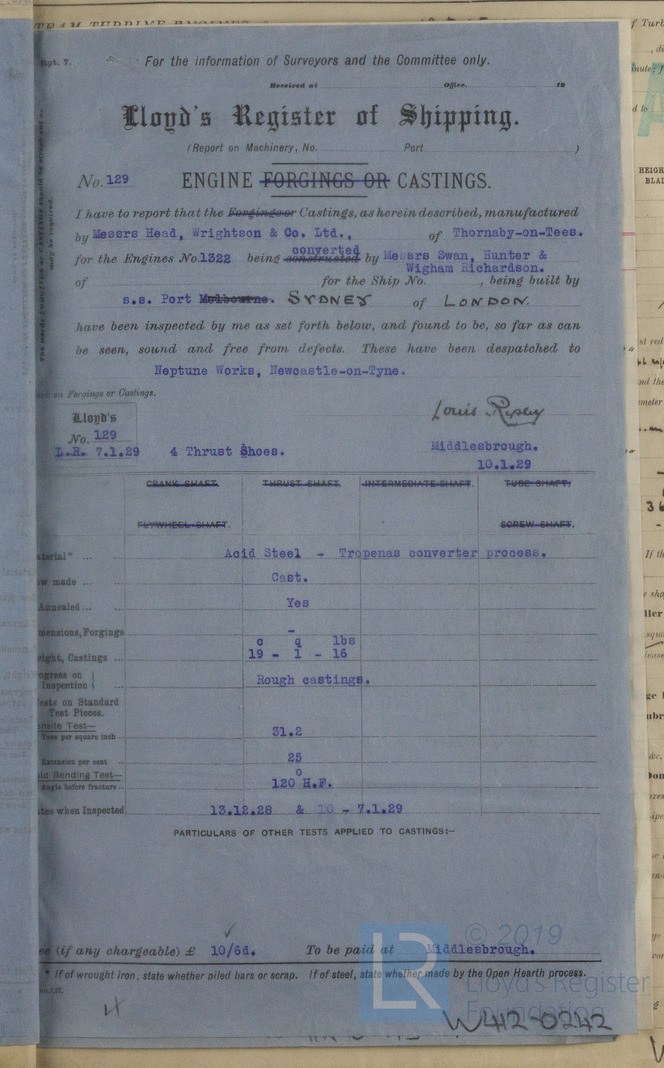 Rpt. 7.
For the information of Surveyors and the Committee only.
Received at Office, 19
Lloyd's Register of Shipping.
(Report on Machinery, No. Port )
No. 129 ENGINE FORGINGS OR CASTINGS.
I have to report that the Forgings or Castings, as herein described, manufactured
by Messrs Head, Wrightson & Co. Ltd., of Thornaby-on-Tees.
converted
for the Engines No. 1322 being constructed by Messrs Swan, Hunter &
Wigham Richardson.
of for the Ship No. , being built by
s.s. Port Melbourne. SYDNEY of LONDON.
have been inspected by me as set forth below, and found to be, so far as can
be seen, sound and free from defects. These have been despatched to
Neptune Works, Newcastle-on-Tyne.
on Forgings or Castings.
Lloyd's
No. 129
L.R. 7.1.29 4 Thrust Shoes.
Middlesbrough.
10.1.29
CRANK SHAFT. THRUST SHAFT. INTERMEDIATE SHAFT. TUBE SHAFT.
FLYWHEEL SHAFT. SCREW SHAFT.
aterial* ... Acid Steel - Tropenas converter process.
ow made ... Cast.
Annealed ... Yes
mensions, Forgings -
c q lbs
eight, Castings ... 19 - 1 - 16
ogress on
Inspection ... Rough castings.
ests on Standard
Test Pieces.
nsile Test—
Tons per square inch ... 31.2
Extension per cent 25
ld Bending Test— o
Angle before fracture... 120 H.F.
tes when Inspected 13.12.28 & 10 - 7.1.29
PARTICULARS OF OTHER TESTS APPLIED TO CASTINGS:-
ee (if any chargeable) £ 10/6d. To be paid at Middlesbrough.
* If of wrought iron, state whether piled bars or scrap. If of steel, state whether made by the Open Hearth process.
LR
© 2019
Lloyd's Register
Foundation
W412-0242